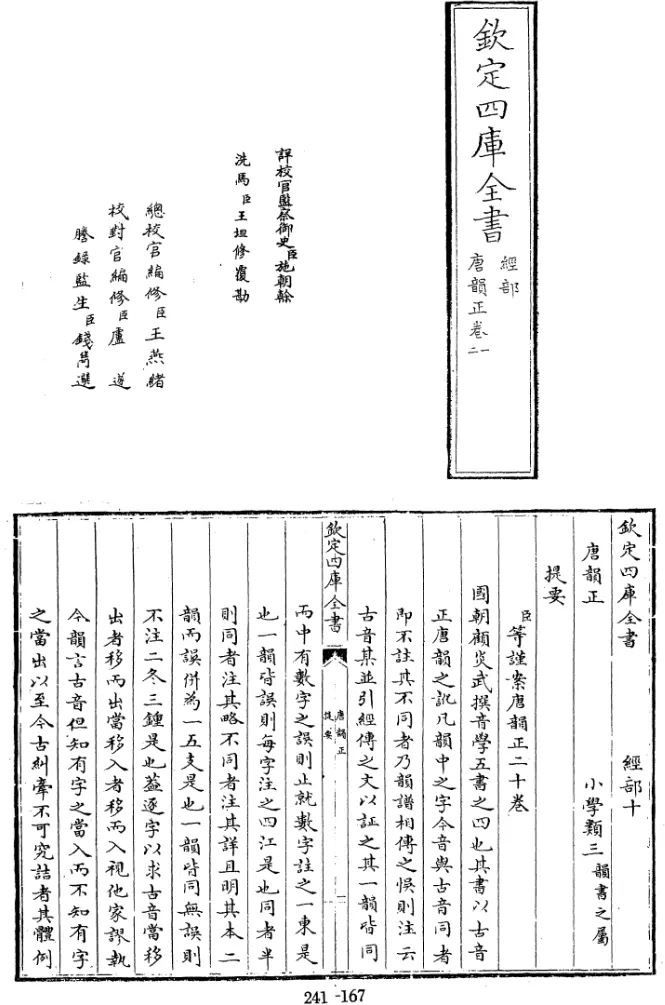 欽定四庫全書
經部
唐韻正卷一二
詳校官監察御史臣施朝幹
洗馬臣王坦修覆勘
總校官編修臣王燕緒
校對官編修臣盧遂
謄錄監生臣錢選
欽定四庫全書 經部十
唐韻正 小學類三韻書之屬
提要
臣等謹案唐韻正二十卷
國朝顧炎武撰音學五書之四也其書以古音
正唐韻之訛凡韻中之字今音與古音同者
即不註其不同者乃韻譜相傳之悞則注云
古音某並引經傳之文以証之其一韻皆同
欽定四庫全書
唐韻正
提要
一
而中有數字之誤則止就數字註之一東是
也一韻皆誤則每字注之四江是也同者半
則同者注其略不同者注其詳且明其本二
韻而誤併為一五支是也一韻皆同無誤則
不注二冬三鍾是也葢逐字以求古音當移
出者移而出當移入者移而入視他家謬執
今韻言古音但知有字之當入而不知有字
之當出以至今古糾牽不可究詰者其體例
241-167